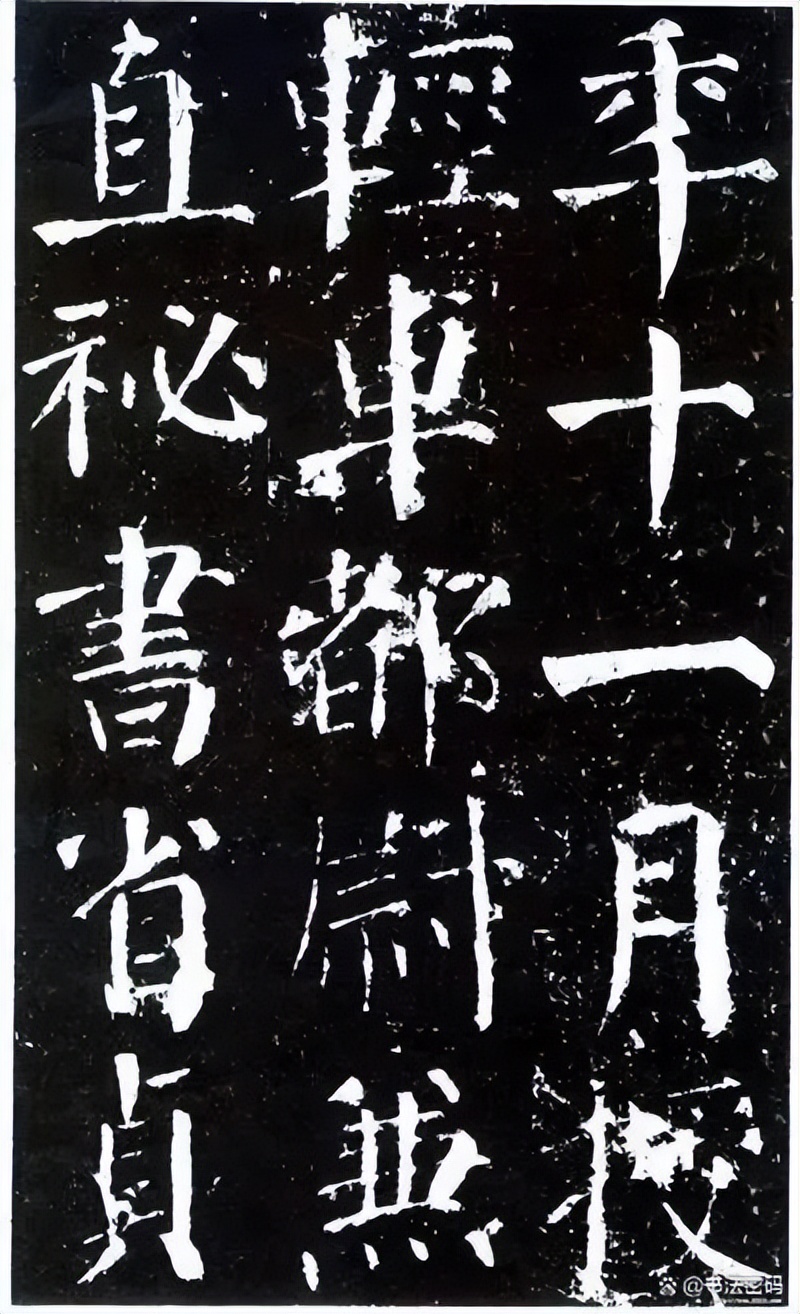 年十一月授
輕車都尉兼
直祕書省貞
@书法密码